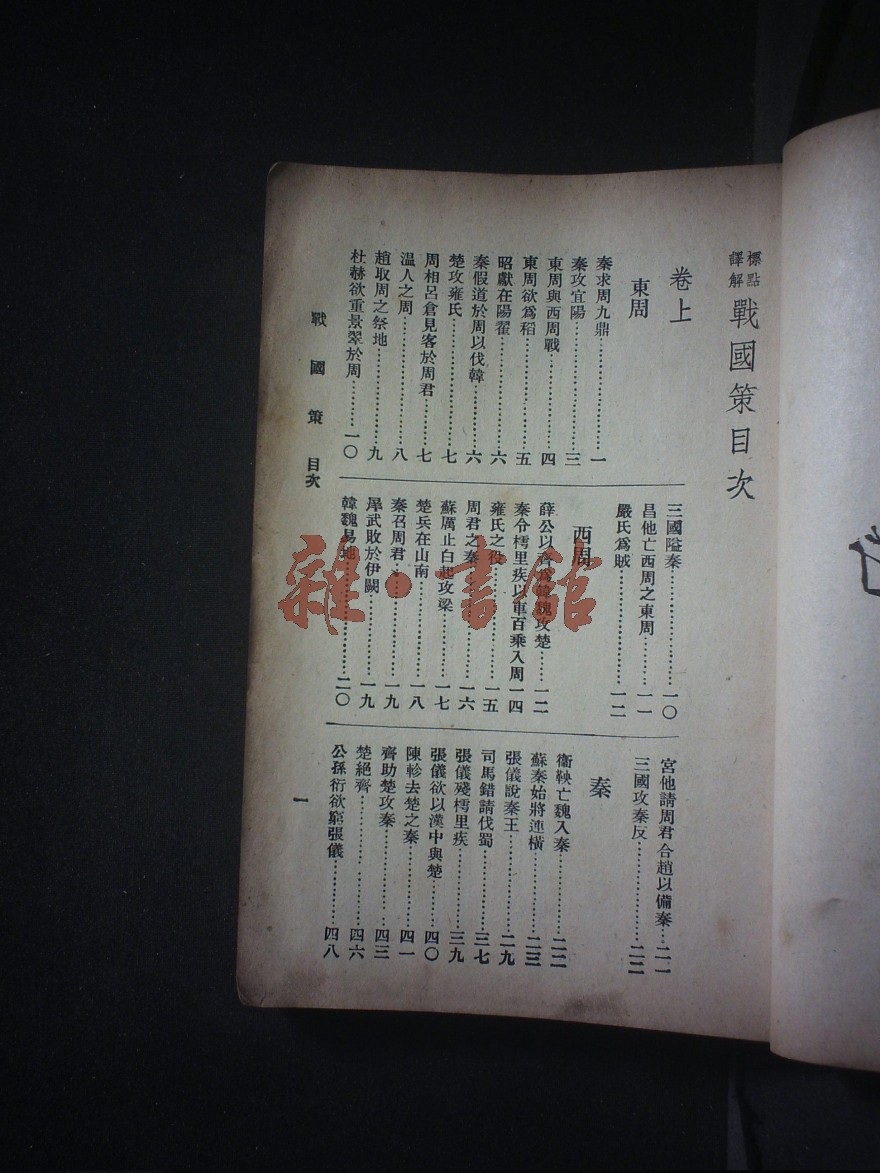 標點譯解 戰國策目次
卷上
東周
秦求周九鼎……一
秦攻宜陽……三
東周與西周戰……四
東周欲為稻……五
昭獻在陽翟……六
秦假道於周以伐韓……六
楚攻雍氏……七
周相呂倉見客於周君……七
温人之周……八
趙取周之祭地……九
杜赫欲重景翠於周……一〇
三國隘秦……一〇
昌他亡西周之東周……一一
嚴氏爲賊……一二
西周
薛公以齊爲韓魏攻楚……一二
秦令樗里疾以車百乘入周一四
雍氏之役……一五
周君之秦……一六
蘇厲止白起攻梁……一七
楚兵在山南……一八
秦召周君……一九
犀武敗於伊闕……一九
韓魏易地……二〇
宮他請周君合趙以備秦……二一
三國攻秦反……二二
秦
衞鞅亡魏入秦……二二
蘇秦始將連橫……二三
張儀說秦王……二九
司馬錯請伐蜀……三七
張儀殘樗里疾……三九
張儀欲以漢中與楚……四〇
陳軫去楚之秦……四一
齊助楚攻秦……四三
楚絕齊……四六
公孫衍欲窮張儀……四八
戰國策 目次
一
雜·書館